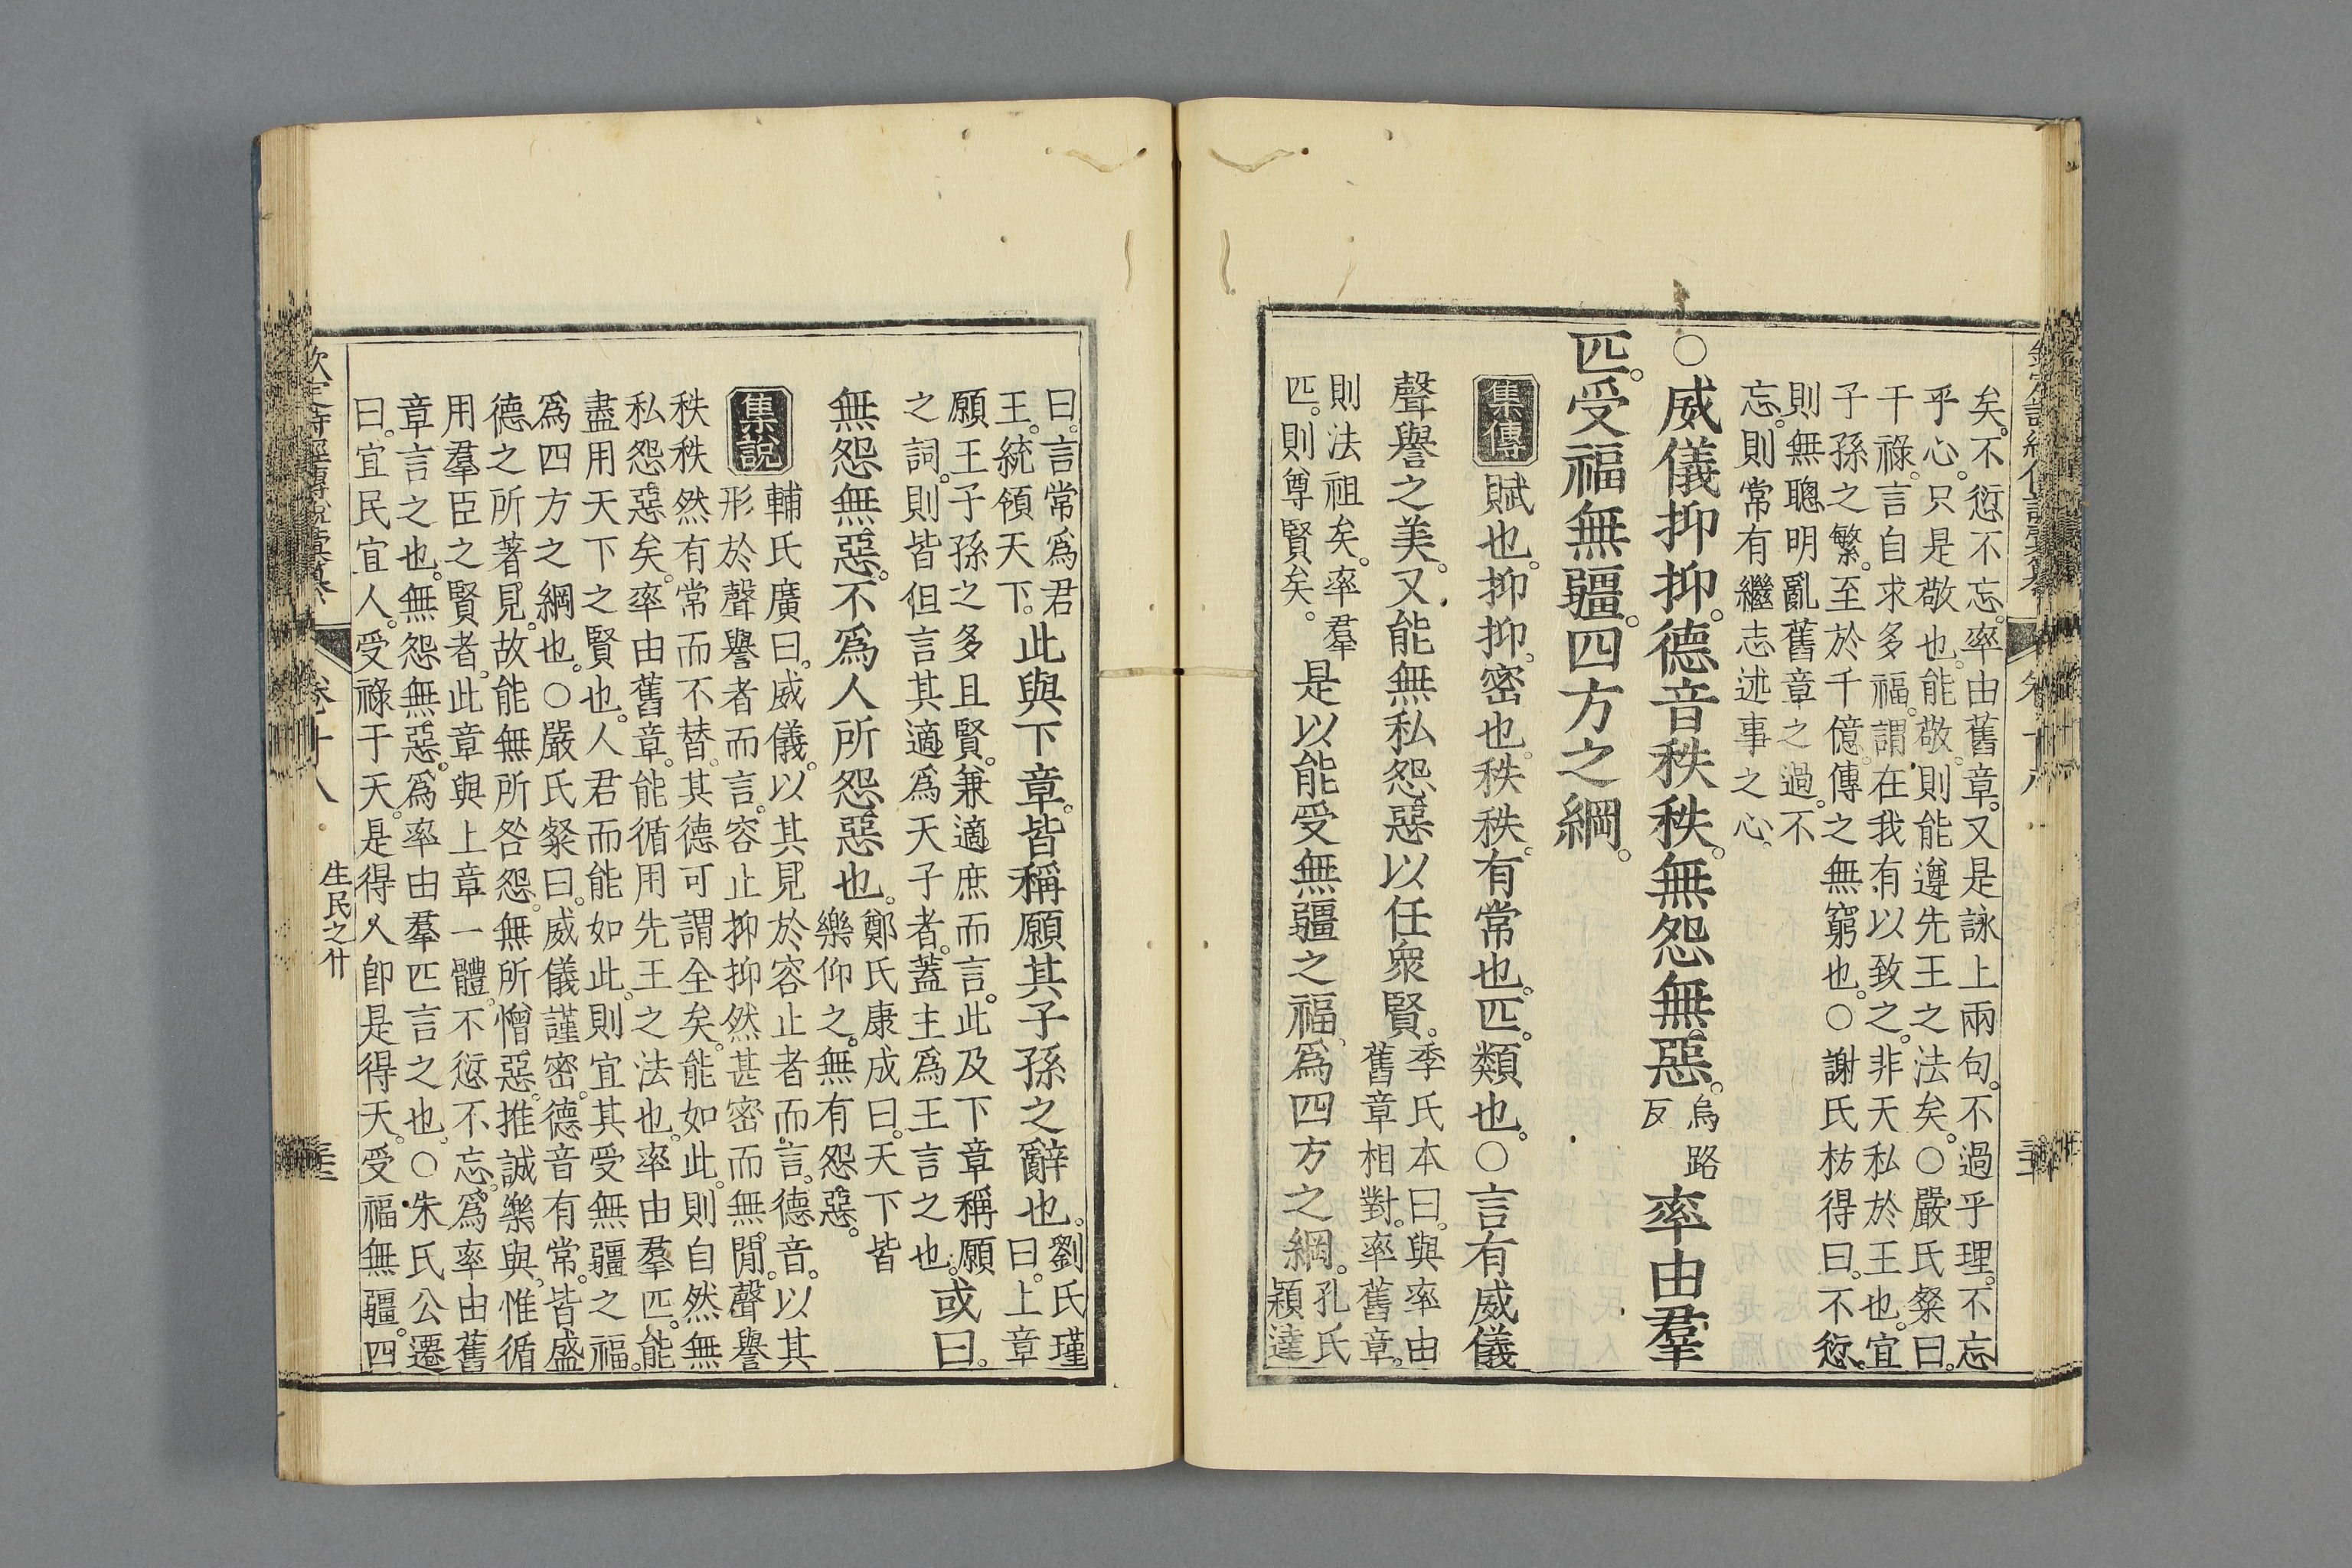 矣。不愆不忘。率由舊章。又是詠上兩句。不過乎理。不忘
乎心。只是敬也。能敬。則能遵先王之法矣。○嚴氏粲曰。
干祿。言自求多福。謂在我有以致之。非天私於王也。宜
子孫之繁。至於千億。傳之無窮也。○謝氏枋得曰。不愆。
則無聰明亂舊章之過。不
忘。則常有繼志述事之心。
○威儀抑抑。德音秩秩。無怨無惡。烏路反率由羣
匹。受福無疆。四方之綱。
集傳 賦也。抑抑。密也。秩秩。有常也。匹。類也。○言有威儀
聲譽之美。又能無私怨惡以任衆賢。季氏本曰。與率由舊章相對。率舊章。
則法祖矣。率羣匹。則尊賢矣。是以能受無疆之福。爲四方之綱。孔氏穎達
曰。言常爲君王。統領天下。此與下章。皆稱願其子孫之辭也。劉氏瑾曰。上章
願王子孫之多且賢。兼適庶而言。此及下章稱願之詞。則皆但言其適爲天子者。蓋主爲王言之也。或曰。
無怨無惡。不爲人所怨惡也。鄭氏康成曰。天下皆樂仰之。無有怨惡。
集說 輔氏廣曰。威儀。以其見於容止者而言。德音。以其
形於聲譽者而言。容止抑抑然甚密而無閒。聲譽
秩秩然有常而不替。其德可謂全矣。能如此。則自然無
私怨惡矣。率由舊章。能循用先王之法也。率由羣匹。能
盡用天下之賢也。人君而能如此。則宜其受無疆之福。
爲四方之綱也。○嚴氏粲曰。威儀謹密。德音有常。皆盛
德之所著見。故能無所咎怨。無所憎惡。推誠樂與。惟循
用羣臣之賢者。此章與上章一體。不愆不忘。爲率由舊
章言之也。無怨無惡。爲率由羣匹言之也。○朱氏公遷
曰。宜民宜人。受祿于天。是得人卽是得天。受福無疆。四
生民之什